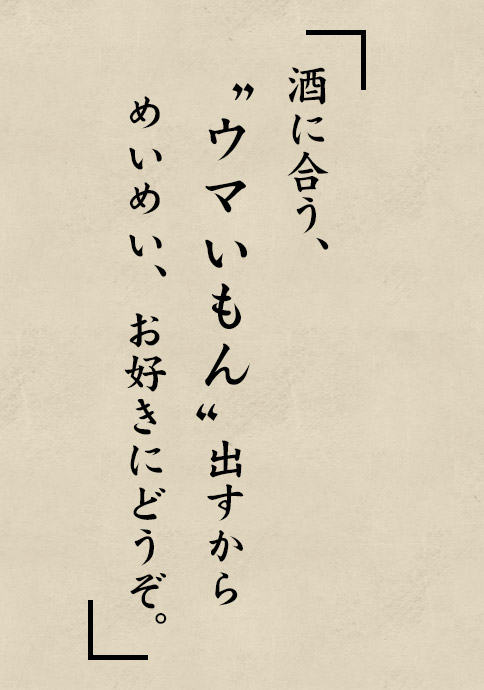 酒に合う、
”ウマいもん“出すから
めいめい、お好きにどうぞ。